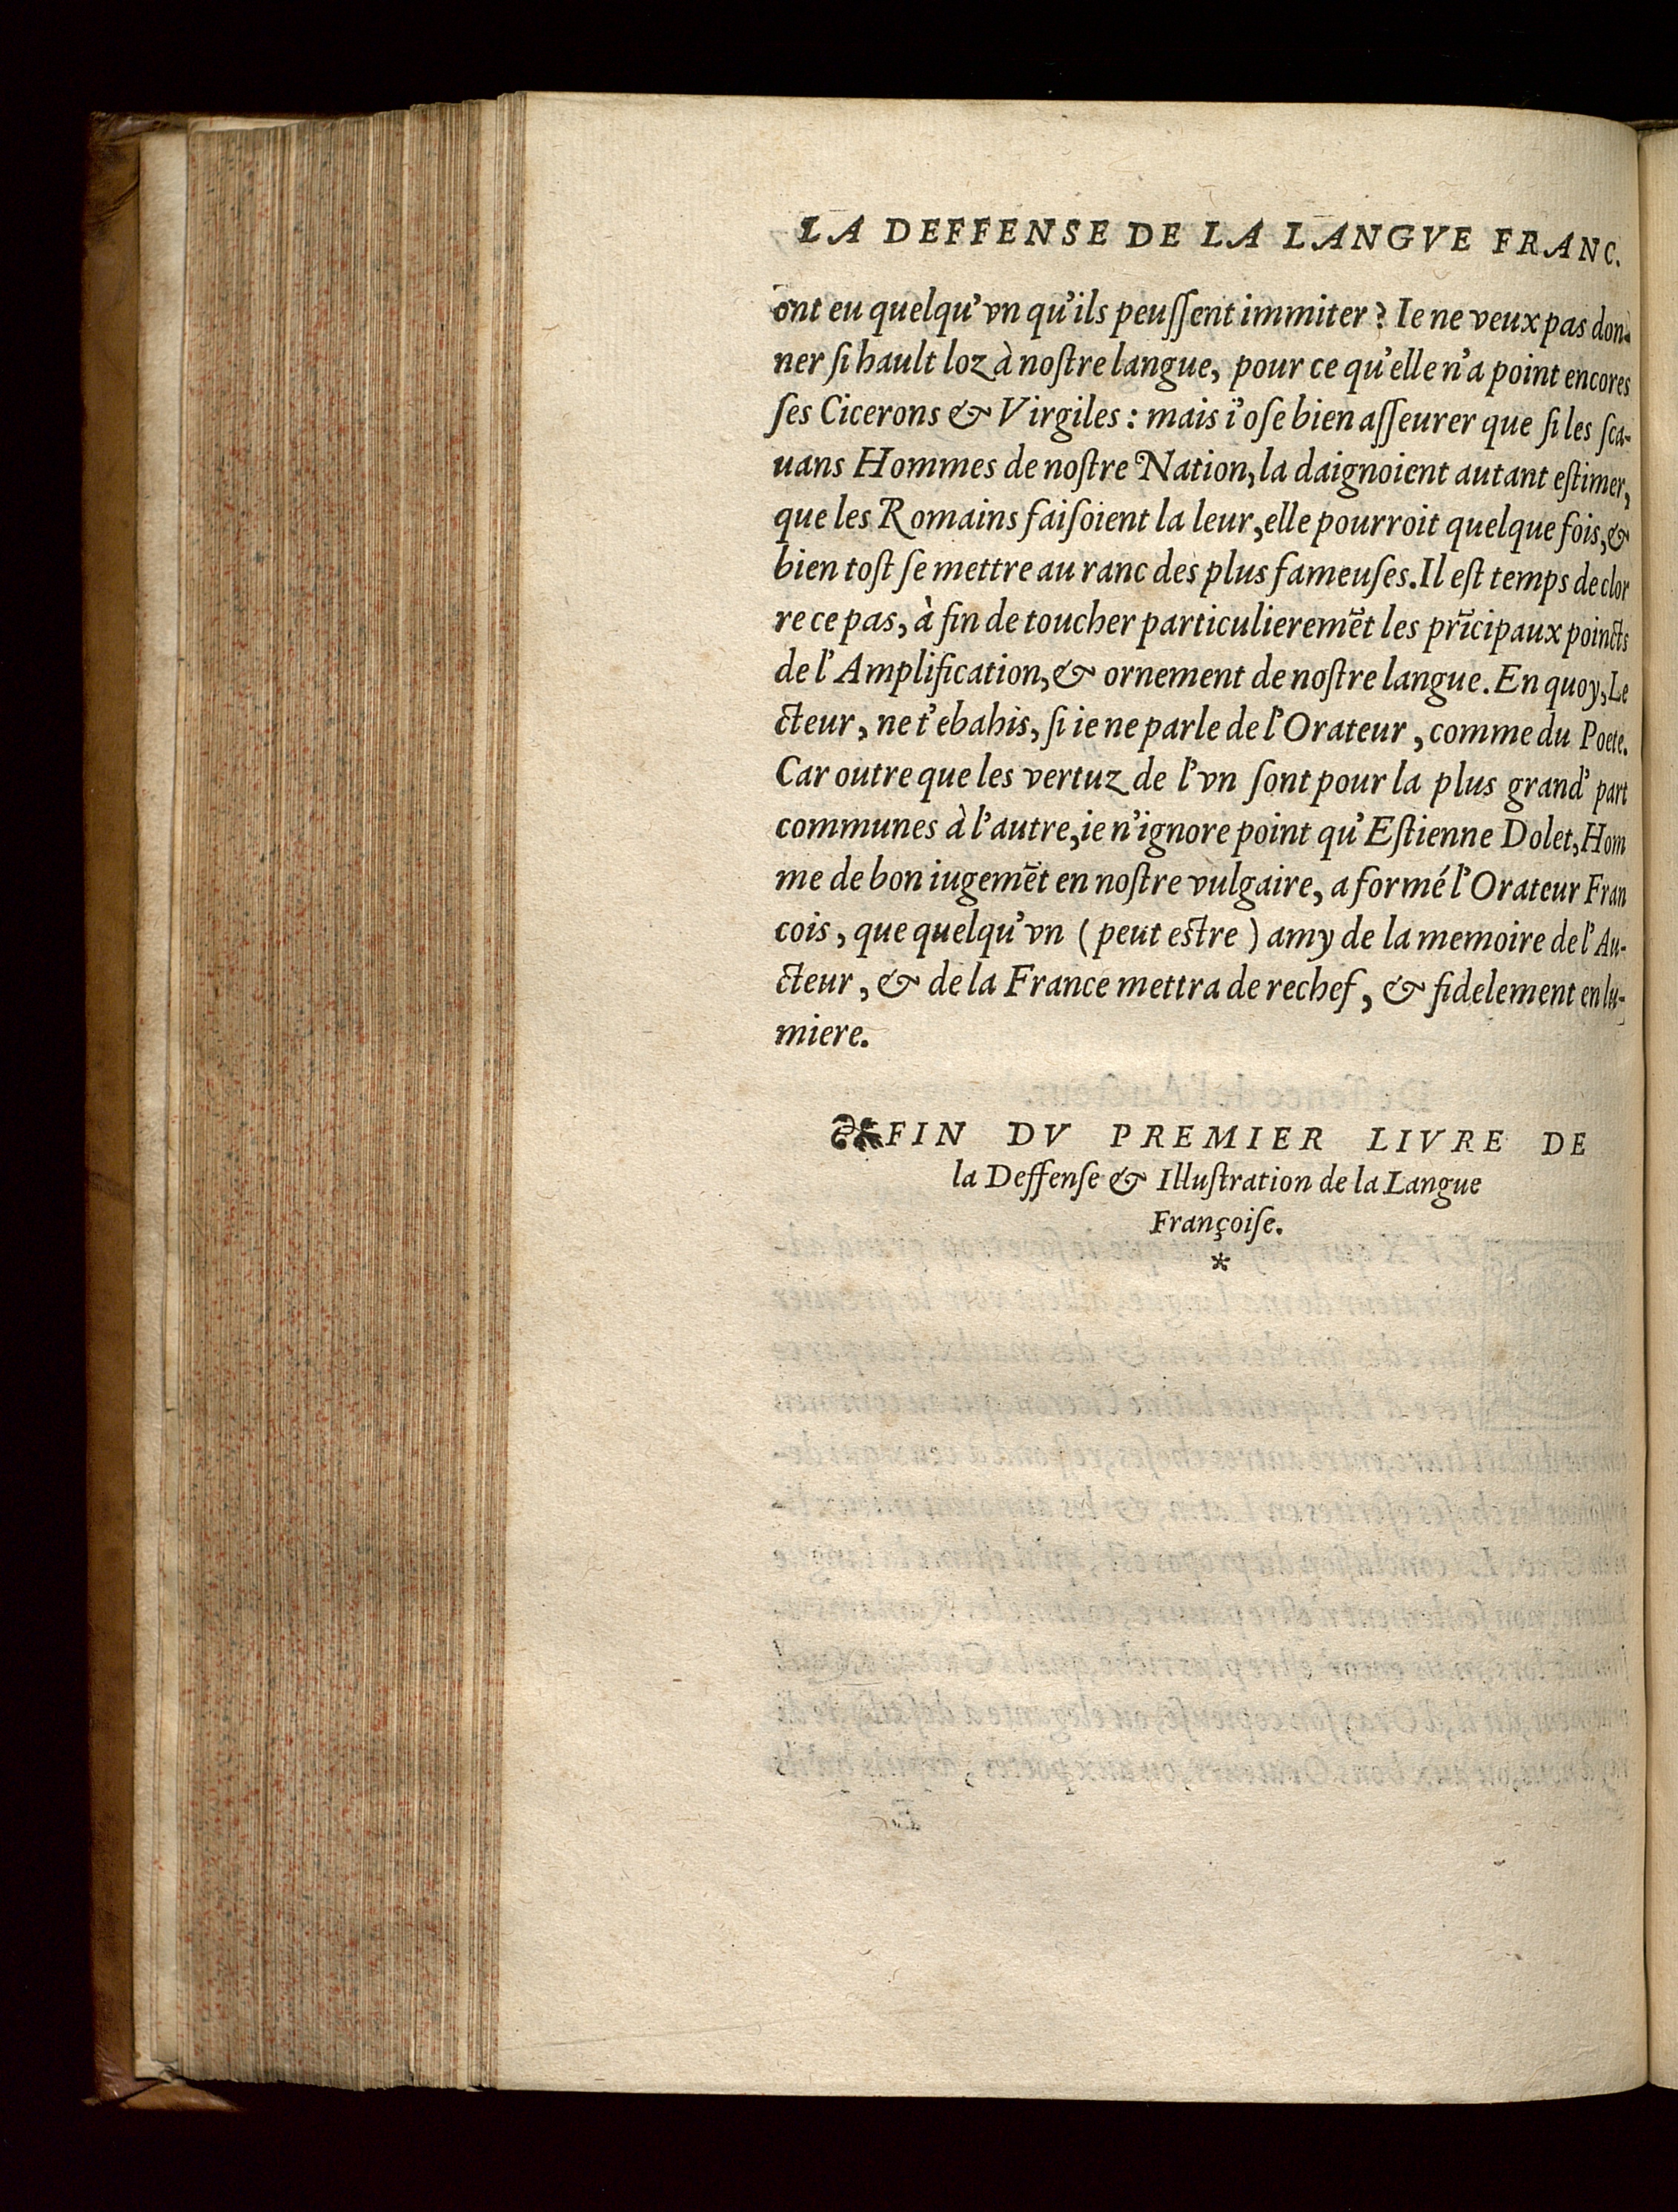 LA DEFFENSE DE LA LANGVE FRANC.
ont eu quelqu'vn qu'ils peuſſent immiter? Ie ne veux pas don-
ner ſi hault loz à noſtre langue, pour ce qu'elle n'a point encores
ſes Cicerons & Virgiles: mais i'oſe bien aſſeurer que ſi les ſca-
uans Hommes de noſtre Nation, la daignoient autant eſtimer,
que les Romains faiſoient la leur, elle pourroit quelque fois, &
bien toſt ſe mettre au ranc des plus fameuſes. Il eſt temps de clor
re ce pas, à fin de toucher particulieremẽt les prĩcipaux poincts
de l'Amplification, & ornement de noſtre langue. En quoy, Le
cteur, ne t'ebahis, ſi ie ne parle de l'Orateur, comme du Poete.
Car outre que les vertuz de l'vn ſont pour la plus grand' part
communes à l'autre, ie n'ignore point qu'Eſtienne Dolet, Hom
me de bon iugemẽt en noſtre vulgaire, a formé l'Orateur Fran
cois, que quelqu'vn (peut eſtre) amy de la memoire de l'Au-
cteur, & de la France mettra de rechef, & fidelement en lu-
miere.
FIN DV PREMIER LIVRE DE
la Deffenſe & Illuſtration de la Langue
Françoiſe.
*